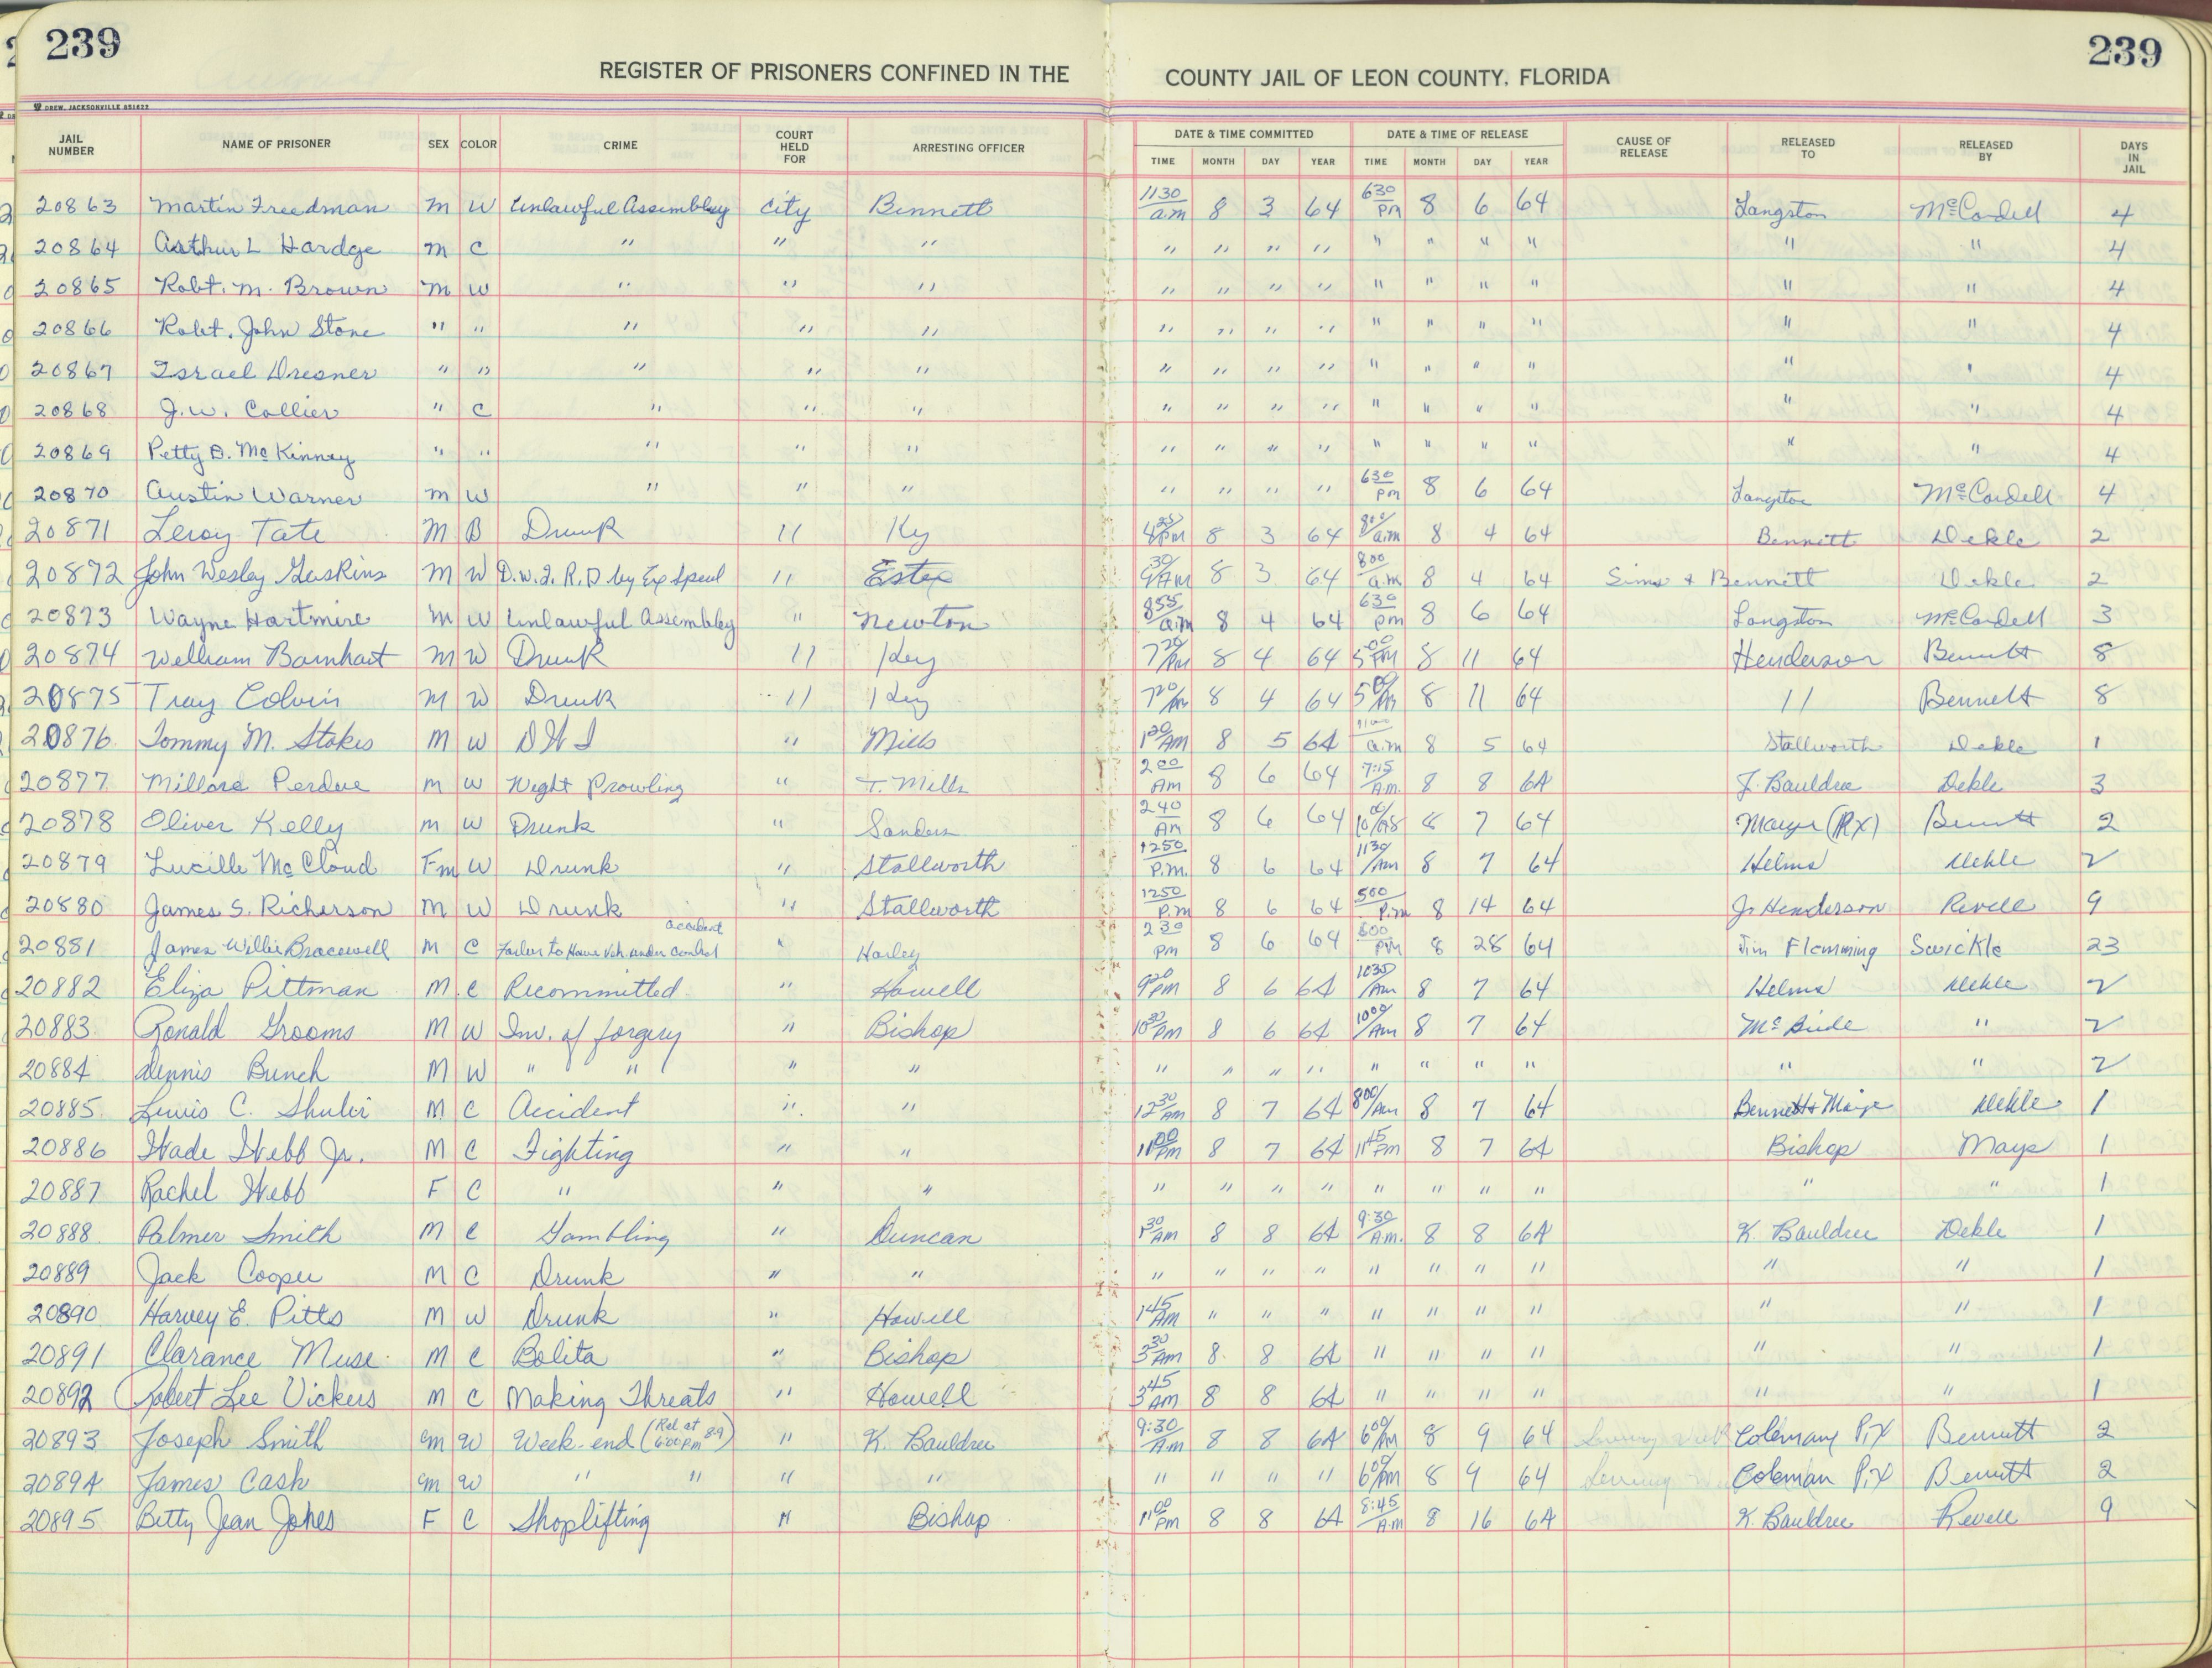 239 239
REGISTER OF PRISONERS CONFINED IN THE COUNTY JAIL OF LEON COUNTY, FLORIDA
DREW, JACKSONVILLE
JAIL NUMBER NAME OF PRISONER SEX COLOR CRIME COURT HELD FOR ARRESTING OFFICER DATE & TIME COMMITTED DATE & TIME OF RELEASE CAUSE OF RELEASE RELEASED TO RELEASED BY DAYS IN JAIL
TIME MONTH DAY YEAR TIME MONTH DAY YEAR
20863 Martin Freedman M W Unlawful Assembley City Bennett 1130 a.m 8 3 64 630 PM 8 6 64 Langston McCordell 4
20864 Arthur L Hardge M C " " " " " " " " " " " " " 4
20865 Robt. M. Brown M W " " " " " " " " " " " " " 4
20866 Robt. John Stone " " " " " " " " " " " " " " " 4
20867 Israel Dresner " " " " " " " " " " " " " " " 4
20868 J.W. Collier " C " " " " " " " " " " " " " 4
20869 Petty D. McKinney " " " " " " " " " " " " " " " 4
20870 Austin Warner M W " " " " " " " 630 pm 8 6 64 Langston McCordell 4
20871 Leroy Tate M B Drunk " Key 8 3 64 800 a.m 8 4 64 Bennett Dekle 2
20872 John Wesley Gaskins M W D.W.I. R.D by Ex Speed " Estes 930 AM 8 3 64 800 a.m 8 4 64 Sims + Bennett Dekle 2
20873 Wayne Hartmire M W Unlawful Assembley " Newton 855 a.m 8 4 64 630 pm 8 6 64 Langston McCordell 3
20874 William Barnhart M W Drunk " Key 720 PM 8 4 64 500 PM 8 11 64 Henderson Bennett 8
20875 Troy Colvin M W Drunk " Key 720 8 4 64 500 8 11 64 " Bennett 8
20876 Tommy M. Stokes M W DWI " Mills 120 AM 8 5 64 1100 a.m 8 5 64 Stallworth Dekle 1
20877 Millard Perdue M W Night Prowling " T. Mills 200 AM 8 6 64 7:15 A.M. 8 8 64 J. Bauldree Dekle 3
20878 Oliver Kelly M W Drunk " Sanders 240 AM 8 6 64 8 7 64 Bennett 2
20879 Lucille McCloud Fm W Drunk " Stallworth 1250 P.M. 8 6 64 1130 AM 8 7 64 Helms Dekle 2
20880 James S. Richerson M W Drunk " Stallworth 1250 P.M 8 6 64 500 P.M 8 14 64 J. Henderson Revell 9
accident
20881 James Willie Bracewell M C Failure to Have Veh. under Control " Harley 230 pm 8 6 64 800 PM 8 28 64 Jim Flemming Swickle 23
20882 Eliza Pittman M C Recommitted " Howell 920 PM 8 6 64 1035 AM 8 7 64 Helms Dekle 2
20883 Ronald Grooms M W Inv. of forgery " Bishop 1030 PM 8 6 64 1000 AM 8 7 64 " 2
20884 Dennis Bunch M W " " " " " " " " " " " " " " 2
20885 Lewis C. Shuler M C Accident " " 1230 AM 8 7 64 800 AM 8 7 64 Bennett + Dekle 1
20886 Wade Webb Jr. M C Fighting " " 1100 PM 8 7 64 1145 PM 8 7 64 Bishop Mays 1
20887 Rachel Webb F C " " " " " " " " " " " " " 1
20888 Palmer Smith M C Gambling " Duncan 130 AM 8 8 64 9:30 A.M. 8 8 64 K. Bauldree Dekle 1
20889 Jack Cooper M C Drunk " " " " " " " " " " " " 1
20890 Harvey E. Pitts M W Drunk " Howell 145 AM " " " " " " " " " 1
20891 Clarance Muse M C Bolita " Bishop 330 AM 8 8 64 " " " " " " 1
20892 Robert Lee Vickers M C Making Threats " Howell 345 AM 8 8 64 " " " " " " 1
20893 Joseph Smith M W Week-end (Rel at 6:00 PM 8-9) " K. Bauldree 9:30 A.M 8 8 64 600 PM 8 9 64 Coleman Bennett 2
20894 James Cash M W " " " " " " " " 600 PM 8 9 64 Coleman Bennett 2
20895 Betty Jean Jones F C Shoplifting " Bishop 1100 PM 8 8 64 8:45 A.M 8 16 64 K. Bauldree Revell 9